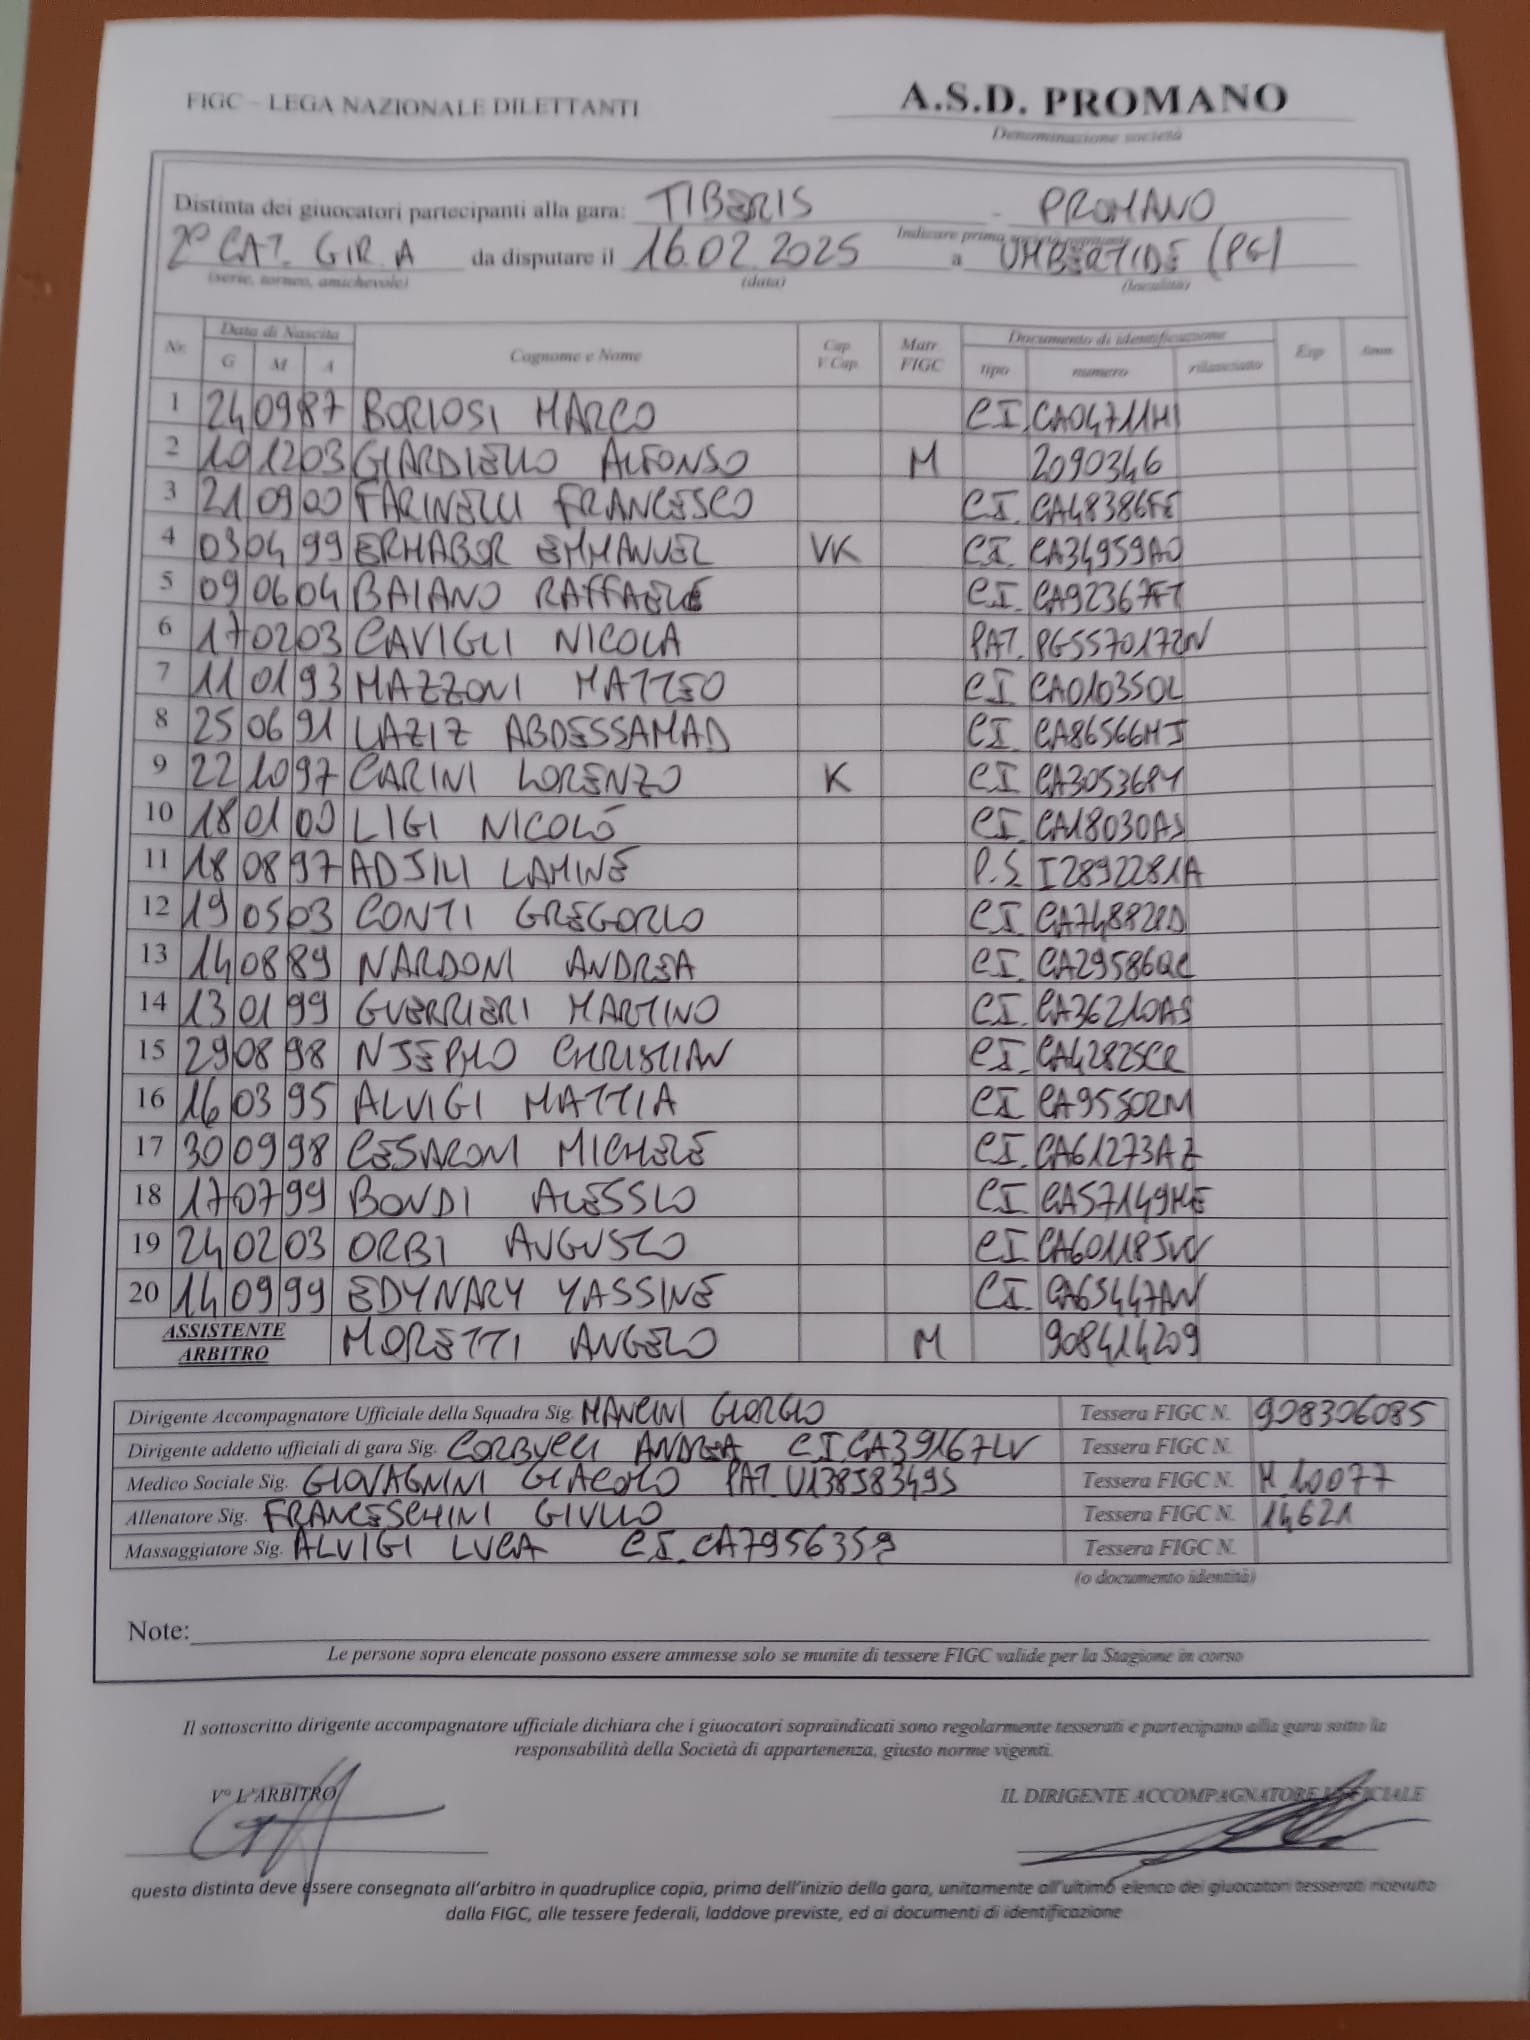 FIGC – LEGA NAZIONALE DILETTANTI
A.S.D. PROMANO
Denominazione società
Distinta dei giuocatori partecipanti alla gara: TIBERIS - PROMANO
Indicare prima
2° CAT. GIR. A da disputare il 16.02.2025 a UMBERTIDE (PG)
(serie, torneo, amichevole) (data) (località)
Nr. Data di Nascita Cognome e Nome Cap. V.Cap. Matr. FIGC Documento di identificazione Esp
G M A tipo numero rilasciato
1 24 09 87 BORIOSI MARCO C.I. CA04711HI
2 10 12 03 GIARDIELLO ALFONSO M 2090346
3 21 09 00 FARINELLI FRANCESCO C.I. CA48386FE
4 03 04 99 ERHABOR EMMANUEL VK C.I. CA34959AO
5 09 06 04 BAIANO RAFFAELE C.I. CA92367FT
6 17 02 03 CAVIGLI NICOLA PAT. PG5570172N
7 11 01 93 MAZZONI MATTEO C.I. CA01035OL
8 25 06 91 LAZIZ ABDESSAMAD C.I. CA86566MJ
9 22 10 97 CARINI LORENZO K C.I. CA30536PY
10 18 01 00 LIGI NICOLÓ C.I. CA18030AS
11 18 08 97 ADJILI LAMINE P.S. I2892281A
12 19 05 03 CONTI GREGORIO C.I.
13 14 08 89 NARDONI ANDREA C.I. CA29586QC
14 13 01 99 GUERRIERI MARTINO C.I. CA36210AS
15 29 08 98 NJEPMO CHRISTIAN C.I. CA42825CR
16 16 03 95 ALVIGI MATTIA C.I.
17 30 09 98 CESARONI MICHELE C.I. CA61273AZ
18 17 07 99 BONDI ALESSIO C.I. CA57149ME
19 24 02 03 ORBI AUGUSTO C.I. CA60118JW
20 14 09 99 EDYNARY YASSINE C.I. CA65447AW
ASSISTENTE ARBITRO MORETTI ANGELO M 908414209
Dirigente Accompagnatore Ufficiale della Squadra Sig. MANCINI GIORGIO Tessera FIGC N. 908306085
Dirigente addetto ufficiali di gara Sig. CORBUCCI ANDREA C.I. CA39167LV Tessera FIGC N.
Medico Sociale Sig. GIOVAGNINI GIACOMO PAT. U138583495 Tessera FIGC N. M.10077
Allenatore Sig. FRANCESCHINI GIULIO Tessera FIGC N. 14621
Massaggiatore Sig. ALVIGI LUCA C.I. Tessera FIGC N.
(o documento identità)
Note:
Le persone sopra elencate possono essere ammesse solo se munite di tessere FIGC valide per la Stagione in corso
Il sottoscritto dirigente accompagnatore ufficiale dichiara che i giuocatori sopraindicati sono regolarmente tesserati e partecipano alla gara sotto la
responsabilità della Società di appartenenza, giusto norme vigenti.
V° L'ARBITRO IL DIRIGENTE ACCOMPAGNATORE UFFICIALE
questa distinta deve essere consegnata all'arbitro in quadruplice copia, prima dell'inizio della gara, unitamente all'ultimo elenco dei giuocatori tesserati ricevuto
dalla FIGC, alle tessere federali, laddove previste, ed ai documenti di identificazione